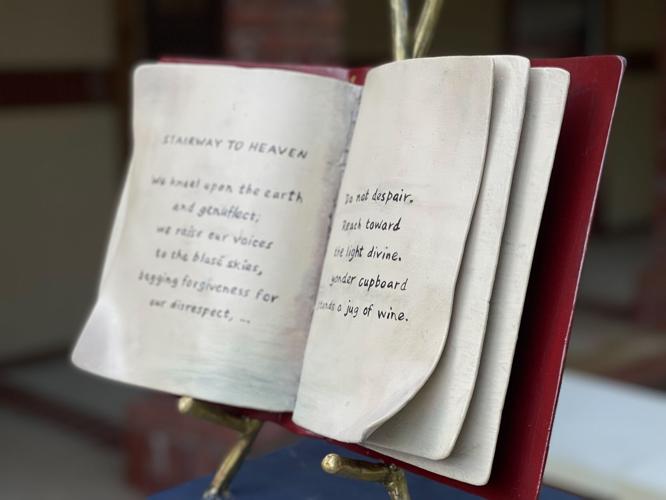 STAIRWAY TO HEAVEN
We kneel upon the earth
and genuflect;
we raise our voices
to the blasé skies,
begging forgiveness for
our disrespect, ...
Do not despair.
Reach toward
the light divine.
yonder cupboard
stands a jug of wine.